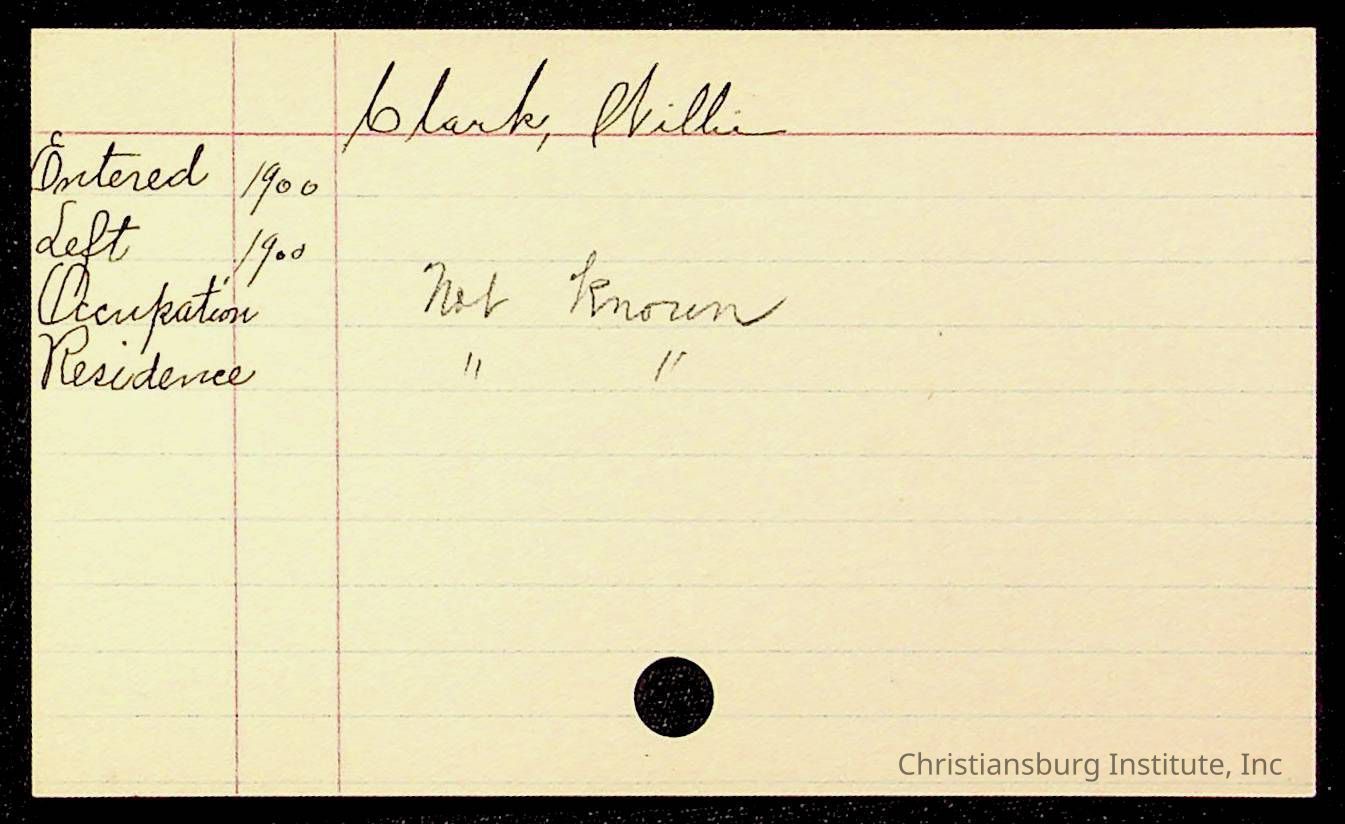 Clark, Willie
Entered 1900
Left 1900
Occupation Not Known
Residence " "
Christiansburg Institute, Inc